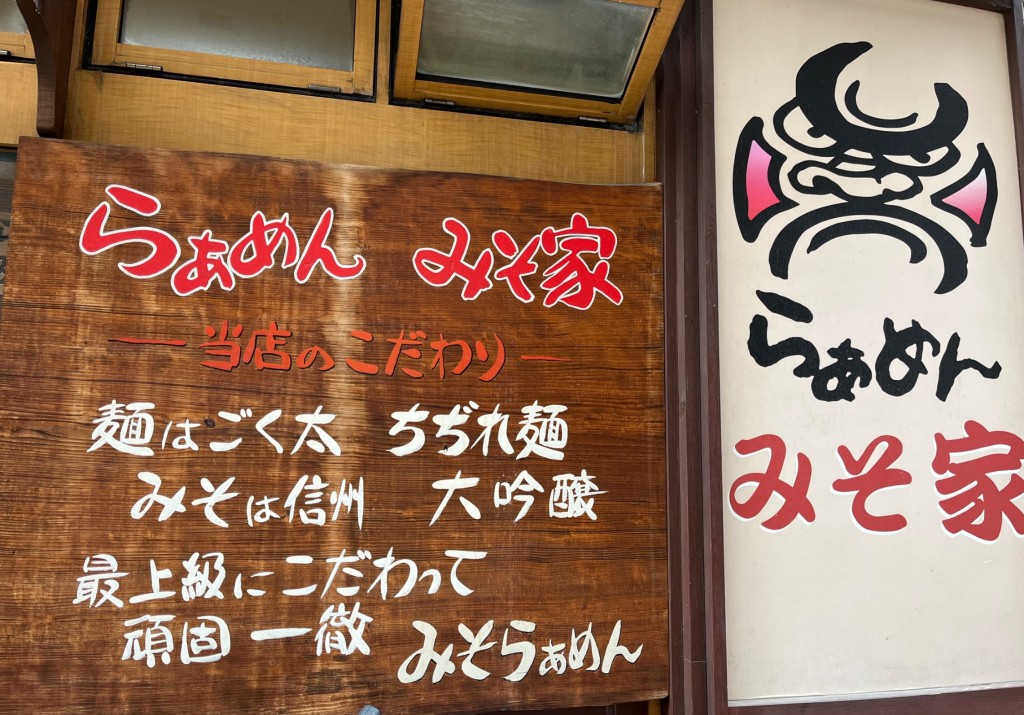 らぁめん みそ家
当店のこだわり
麺はごく太 ちぢれ麺
みそは信州 大吟醸
最上級にこだわって
頑固一徹 みそらぁめん
らぁめん
みそ家